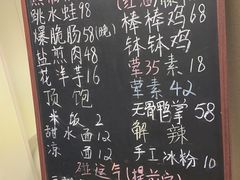 跳水蛙98
爆脆肠58(晚)
盐煎肉48
花洋芋16
顶饱
米饭2
甜水面12
凉面12
棒棒鸡68
钵钵鸡
荤35素18
荤素42
无骨鸭掌58
解辣
手工冰粉10
碰运气